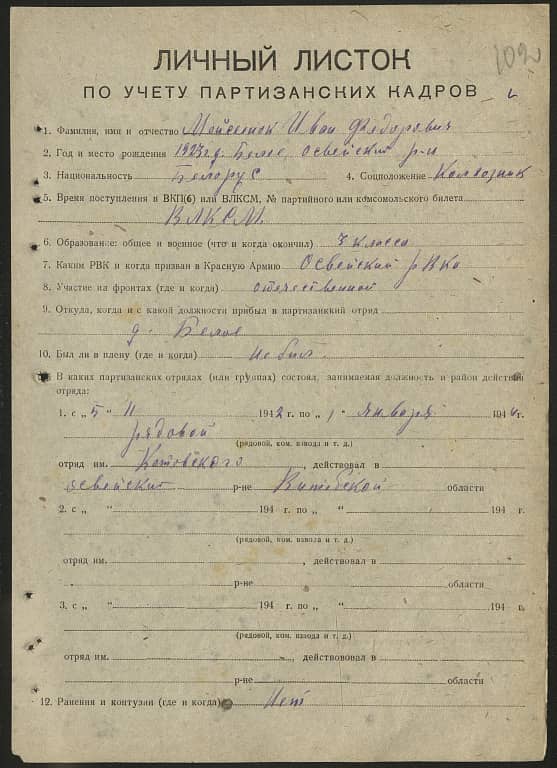 102
ЛИЧНЫЙ ЛИСТОК
ПО УЧЕТУ ПАРТИЗАНСКИХ КАДРОВ
1. Фамилия, имя и отчество Мойсеенок Иван Федорович
2. Год и место рождения 1923 г д. Белое, Освейский р-н
3. Национальность Белорус 4. Соцположение Колхозник
5. Время поступления в ВКП(б) или ВЛКСМ, № партийного или комсомольского билета
ВЛКСМ
6. Образование: общее и военное (что и когда окончил) 7 класса
7. Каким РВК и когда призван в Красную Армию Освейский рвко
8. Участие на фронтах (где и когда) отечественной
9. Откуда, когда и с какой должности прибыл в партизанский отряд
д. Белое
10. Был ли в плену (где и когда) не был
В каких партизанских отрядах (или группах) состоял, занимаемая должность и район действий
отряда:
1. с „ 5 " 11 1942 г. по „ 1 " января 1944 г.
рядовой
(рядовой, ком. взвода и т. д.)
отряд им. Котовского, действовал в
освейский р-не Витебской области
2. с „ " 194 г. по „ " 194 г.
(рядовой, ком. взвола и т. д.)
отряд им. , действовал в
р-не области
3. с „ " 194 г. по „ " 194 г.
(рядовой, ком. взвода и т. д.)
отряд им. , действововал в
р-не области
12. Ранения и контузии (где и когда) Нет